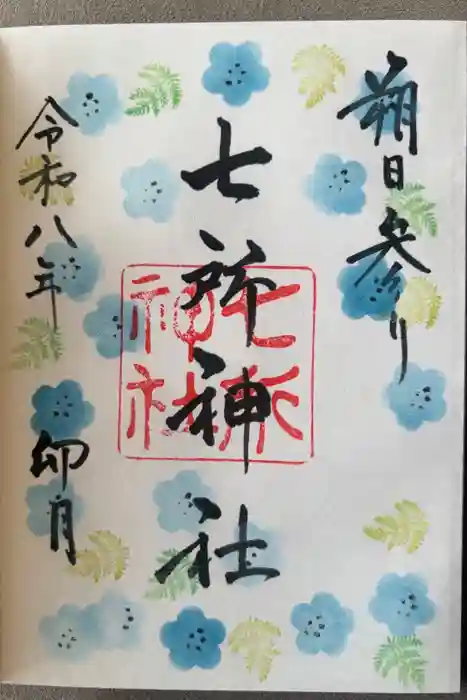 朔日参り
七所神社
七所
神社
令和八年
卯月